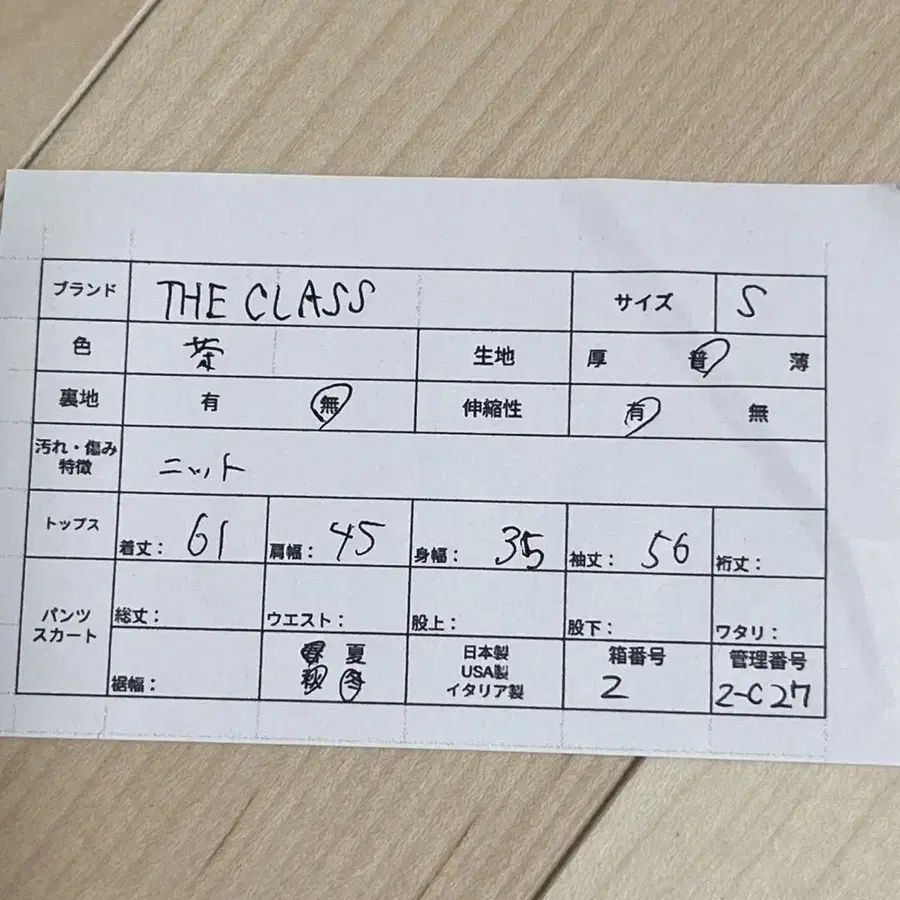 ブランド THE CLASS サイズ S
色 茶 生地 厚 普 薄
裏地 有 無 伸縮性 有 無
汚れ・傷み
特徴 ニット
トップス 着丈： 61 肩幅： 45 身幅： 35 袖丈： 56 裄丈：
パンツ
スカート 総丈： ウエスト： 股上： 股下： ワタリ：
裾幅： 春 夏
秋 冬
日本製
USA製
イタリア製
箱番号
2
管理番号
2-C27